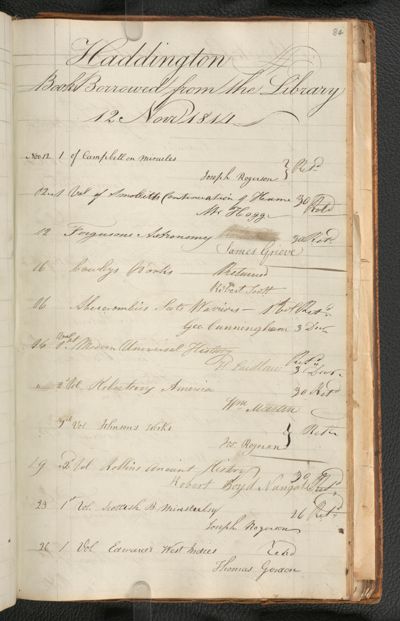 84
Haddington
Books Borrowed from the Library
12 Novr 1814
Nov. 12 1 of Campbell on Miracles
Joseph Rogerson Retd
12 1 Vol of Smolletts Continuation of Hume 30
Mr Hogg Retd
12 Fergusons Astronomy 30 Retd
James Grieve
16 Cowleys Works Returned
Robert Scott
16 Abercrombies 1st Vol Retd
Geo Cunningham 3 Decr
16 Vol 1st Modern Universal History Retd
Laidlaw 3 Decr
2d Vol Robertsons America 30 Retd
Wm
Vol Johnsons Works Retd
Jos. Rogerson
19 2 Vol Rollins Ancient History 30
Robert Boyd Retd
23 1st Vol. Scottish B. Minstrelsy 26 Retd
Joseph Rogerson
26 1 Vol Edwards West Indies Retd
Thomas Gordon